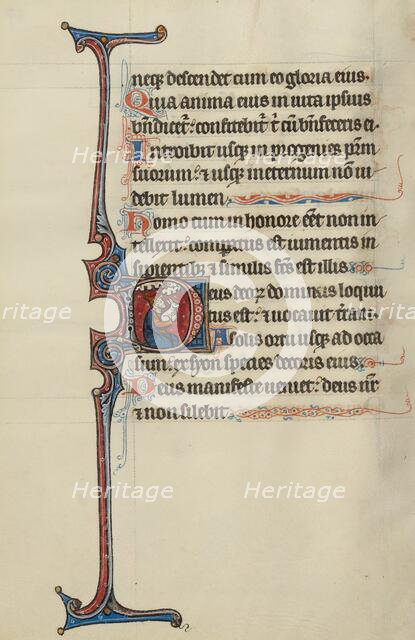 neq̃ descendet cum eo gloria eius.
Quia anima eius in uita ipsius
bn̄dicet᷑: confitebit᷑ t̄ cū bn̄feceris ei.
Introibit usq̃ in progenies pr̃m
suorum: & usq̃ in eternum non ui
debit lumen.
Homo cum in honore eēt non in
tellexit: comparatus est iumentis in
sipientibꝫ & similis fc̄s est illis.
Deus deoꝝ dominus locqu
tus est: & uocauit t̄ram.
A solis ortu usq̃ ad occa
sum: ex syon species decoris eius.
Deus manifeste ueniet: deus nr̄
& non silebit.
Heritage
Heritage
Heritage
Heritage
Heritage
Heritage